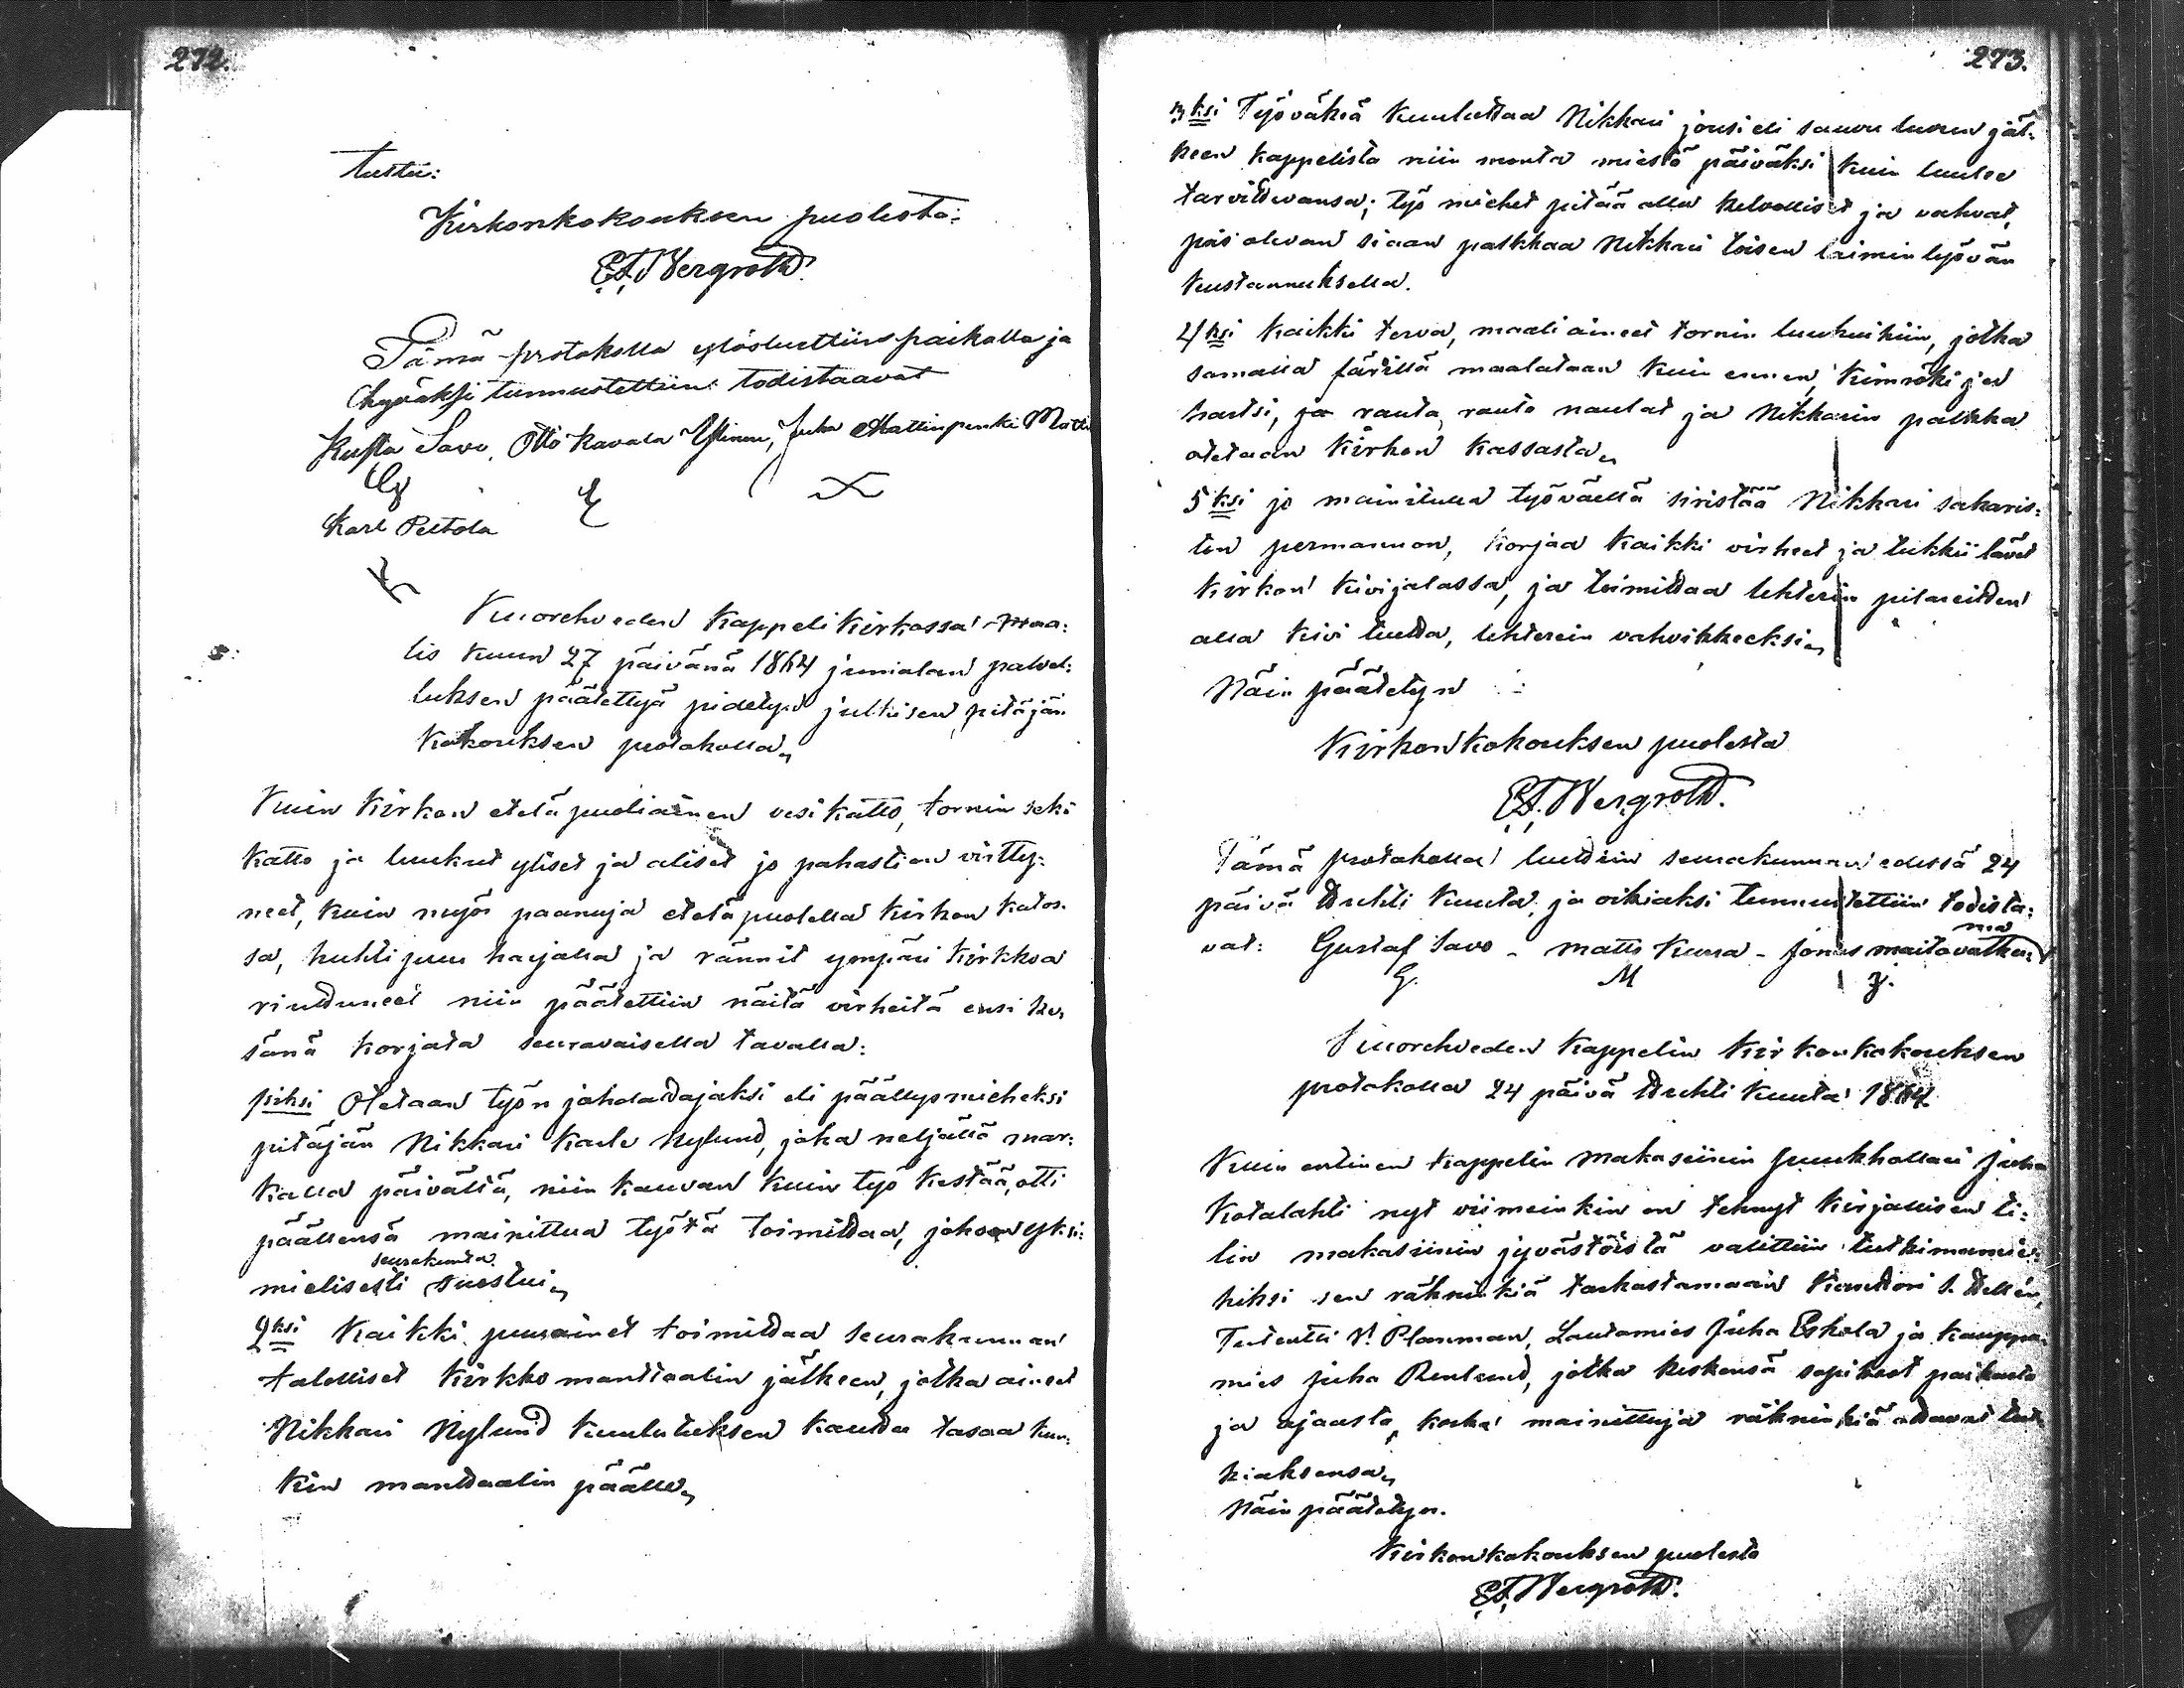 272.
tuttu:
Kirkonkokouksen puolesta:
E. F. Bergroth.
Tämä protokolla ylösluettiin paikalla ja
hyväksi tunnustettiin todistaavat
Kusta Savo, Otto Kavala Yllinen, Juha Mattinpenki Matti
Karl Peltola
K
Kuorehveden Kappeli Kirkossa Maa:
lis kuun 27 päivänä 1864 jumalan palvel:
luksen päätettyä pidetyn julkisen pitäjän
Kokouksen protokolla,
Kuin Kirkon eteläpuoliainen vesikatto, tornin sekä
katto ja luukut yliset ja aliset jo pahasti on virtty:
neet, kuin myös paanuja eteläpuolella kirkon katos-
sa, huhti puu harjalla ja rännit ympäri kirkkoa
rinttuneet niin päätettiin näitä virheitä ensi ke,
sänä korjata seuravaisella tavalla:
1siksi Otetaan työn johdattajaksi eli päällysmieheksi
pitäjän Nikkari Karle Nylund, joka neljällä mar:
kalla päivältä, niin kauvan kuin työ kestää, otti
päällensä mainittua työtä toimittaa, johon yksi:
seurakunta
mielisesti suostui,
2ksi Kaikki puuainet toimittaa seurakunnan
talolliset Kirkko manttaalin jälkeen, jotka aineet
Nikkari Nylund Kuulutuksen kautta tasaa kun:
kin manttaalin päälle,
273.
3ksi Työväkiä kuuluttaa Nikkari jousi eli sauvu luvun jäl:
keen kappelista niin monta miestä päiväksi kuin luulee
tarvittevansa; työ miehet pitää olla kelvolliset ja vahvat,
pois olevan siaan palkkaa Nikkari toisen laimin lyövän
kustannuksella.
4ksi Kaikki terva, maali aineet tornin luukuihiin, jotka
samalla färillä maalataan kuin ennen, kimröki ja
hartsi, ja rauta, rauta naulat ja Nikkarin palkka
otetaan Kirkon Kassasta,
5ksi jo mainitulla työväellä siristää Nikkari sakaris:
ton permannon, korjaa kaikki virheet ja tukkii lävet
Kirkon kivijalassa, ja toimittaa lehterin pilareitten
alla kivi tuetta, lehterein vahvikkeeksi,
Näin päätetyn
Kirkon Kokouksen puolesta
E. F. Bergroth.
Tämä protokolla luettiin seurakunnan edessä 24
päivä Huhti Kuuta, ja oikiaksi tunnustettiin todista:
vat: Gustaf Savo - Matts Kurra - Jonas Maitovatka
G. M J.
Kuorehveden Kappelin Kirkonkokouksen
protokolla 24 päivä Huhti Kuuta 1864
Kuin entinen Kappelin Makasiinin Puukhollari Juha
Kotalahti nyt viimeinkin on tehnyt kirjallisen ti:
lin makasiinin jyvästöistä valittiin tutkimamie:
hiksi sen räkninkiä tarkastamaan Kanttori S. Tellén,
Tutentti V. Planman, Lautamies Juha Eskola ja Kauppa
mies Juha Renlund, jotka keskensä sopikoot paikasta
ja ajaasta, koska mainittuja räkninkiä ottavat tut
kiaksensa,
Näin päätetyn.
Kirkonkokouksen puolesta
E. F. Bergroth.